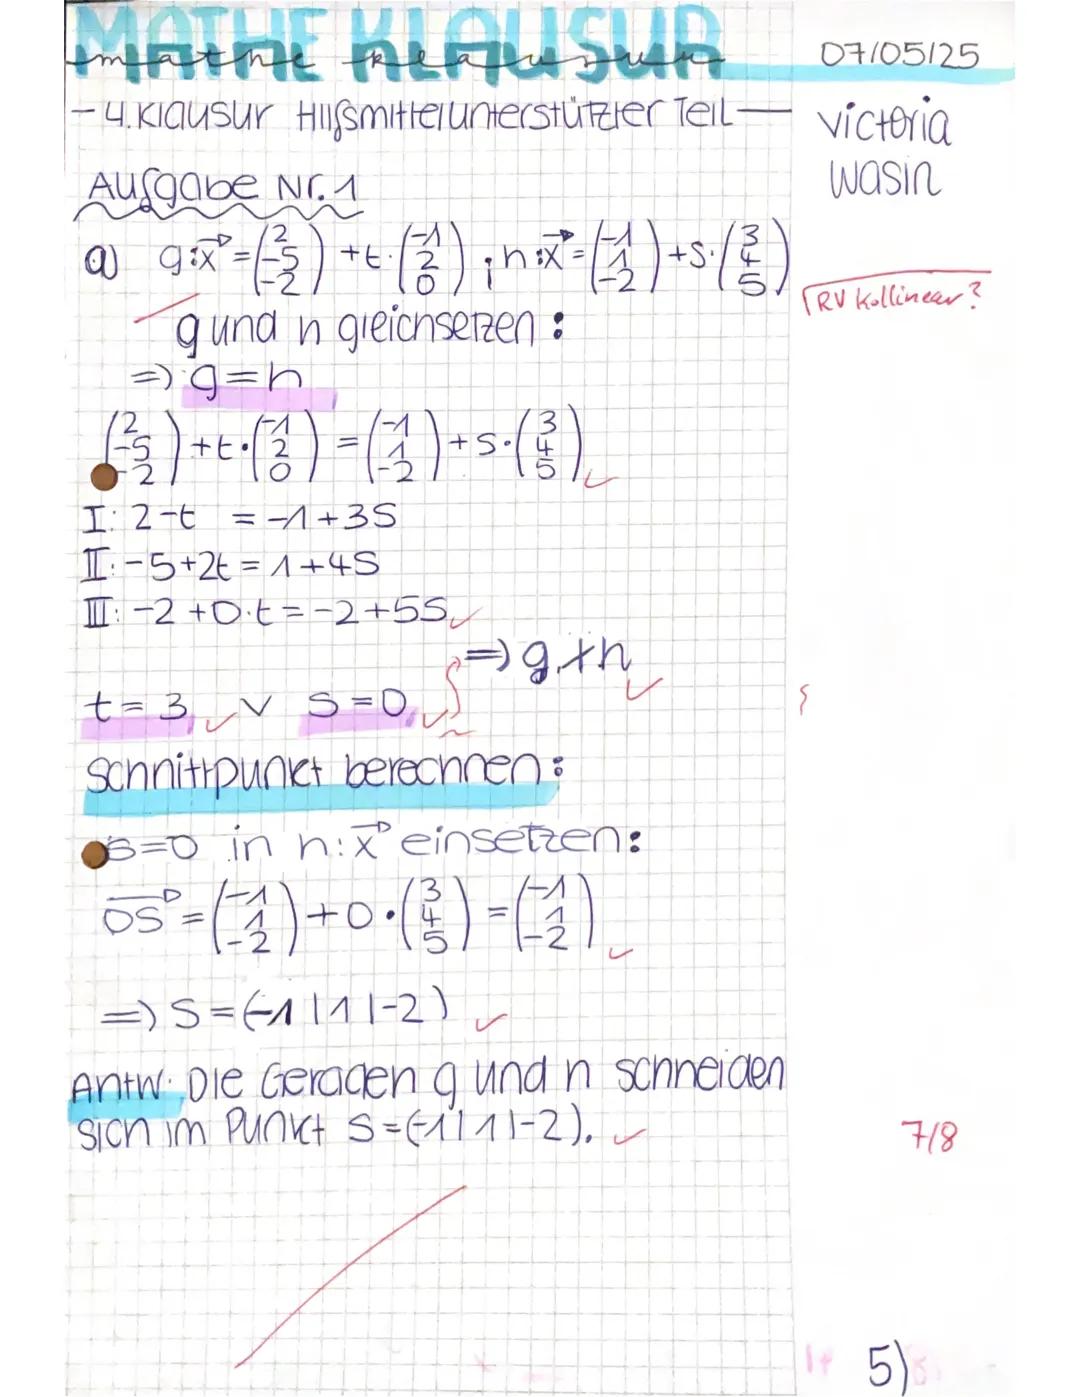 MATHE KLAUSUR
mathe klausur
07/05/25
- 4. Klausur Hilfsmittelunterstützter Teil —
Victoria
Wasin
Aufgabe Nr. 1
a) g:x⃗ = (2 -5 -2) + t·(-1 2 0) ; h:x⃗ = (-1 1 -2) + s·(3 4 5)
RV kollinear?
g und h gleichsetzen:
=> g=h
(2 -5 -2) + t·(-1 2 0) = (-1 1 -2) + s·(3 4 5) ✓
I: 2-t = -1+3s
II: -5+2t = 1+4s
III: -2+0·t = -2+5s ✓
=> g x h ✓
t=3 ✓ ∨ s=0 ✓
Schnittpunkt berechnen:
s=0 in h:x⃗ einsetzen:
OS⃗ = (-1 1 -2) + 0·(3 4 5) = (-1 1 -2) ✓
=> S=(-1|1|-2) ✓
Antw: Die Geraden g und h schneiden
sich im Punkt S=(-1|1|-2). ✓
7/8
5)